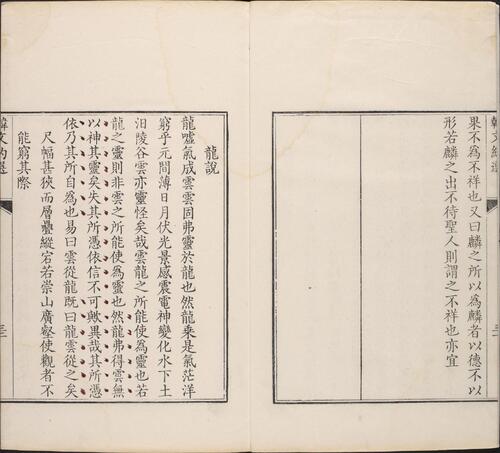 果不為不祥也又曰麟之所以為麟者以德不以
形若麟之出不待聖人則謂之不祥也亦宜
龍說
龍噓氣成雲雲固弗靈於龍也然龍乘是氣茫洋
窮乎元間薄日月伏光景感震電神變化水下土
汩陵谷雲亦靈怪矣哉雲龍之所能使為靈也若
龍之靈則非雲之所能使為靈也然龍弗得雲無
以神其靈矣失其所憑依信不可歟異哉其所憑
依乃其所自為也易曰雲從龍既曰龍雲從之矣
尺幅甚狹而層疊縱宕若崇山廣壑使觀者不
能窮其際
韓文約選